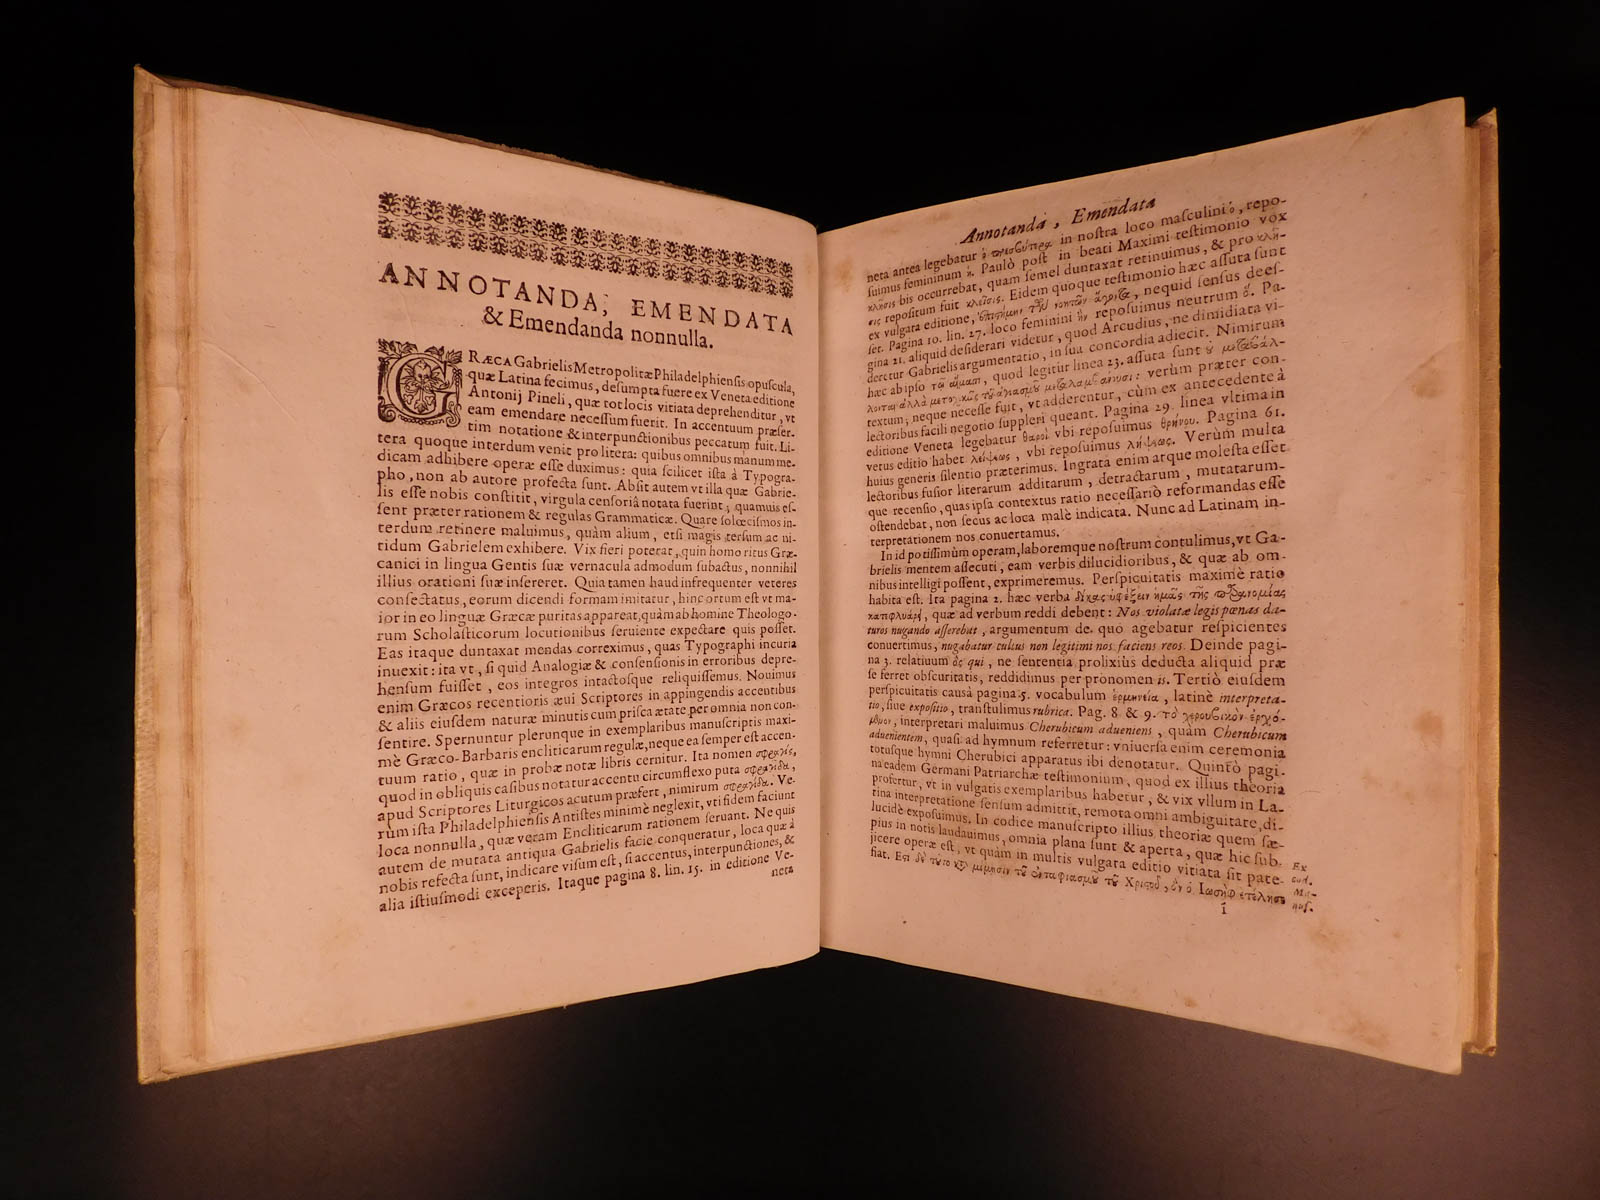 ANNOTANDA, EMENDATA
& Emendanda nonnulla.
GRÆCA Gabrielis Metropolitæ Philadelphiensis opuscula,
quæ Latina fecimus, desumpta fuere ex Veneta editione
Antonij Pineli, quæ tot locis vitiata deprehenditur, vt
eam emendare necessum fuerit. In accentuum præser-
tim notatione & interpunctionibus peccatum fuit. Li-
tera quoque interdum venit pro litera: quibus omnibus manum me-
dicam adhibere operæ esse duximus: quia scilicet ista à Typogra-
pho, non ab autore profecta sunt. Absit autem vt illa quæ Gabrie-
lis esse nobis constitit, virgula censoriâ notata fuerint; quamuis es-
sent præter rationem & regulas Grammaticæ. Quare solœcismos in-
terdum retinere maluimus, quàm alium, etsi magis tersum ac ni-
tidum Gabrielem exhibere. Vix fieri poterat, quin homo ritus Græ-
canici in lingua Gentis suæ vernacula admodum subactus, nonnihil
illius orationi suæ insereret. Quia tamen haud infrequenter veteres
consectatus, eorum dicendi formam imitatur, hinc ortum est vt ma-
ior in eo linguæ Græcæ puritas appareat, quàm ab homine Theologo-
rum Scholasticorum locutionibus seruiente expectare quis posset.
Eas itaque duntaxat mendas correximus, quas Typographi incuria
inuexit: ita vt, si quid Analogiæ & consensionis in erroribus depre-
hensum fuisset, eos integros intactosque reliquissemus. Nouimus
enim Græcos recentioris æui Scriptores in appingendis accentibus
& aliis eiusdem naturæ minutis cum prisca ætate per omnia non con-
sentire. Spernuntur plerunque in exemplaribus manuscriptis maxi-
mè Græco-Barbaris encliticarum regulæ, neque ea semper est accen-
tuum ratio, quæ in probæ notæ libris cernitur. Ita nomen σφραγὶς,
quod in obliquis casibus notatur accentu circumflexo puta σφραγῖδα,
apud Scriptores Liturgicos acutum præfert, nimirum σφραγίδα. Ve-
rùm ista Philadelphiensis Antistes minimè neglexit, vti fidem faciunt
loca nonnulla, quæ veram Encliticarum rationem seruant. Ne quis
autem de mutata antiqua Gabrielis facie conqueratur, loca quæ à
nobis refecta sunt, indicare visum est, si accentus, interpunctiones, &
alia istiusmodi exceperis. Itaque pagina 8. lin. 15. in editione Ve-
neta
Annotanda, Emendata
neta antea legebatur in nostra loco masculini ὁ, repo-
suimus femininum ἡ. Paulò post in beati Maximi testimonio vox
κλῆσις bis occurrebat, quam semel duntaxat retinuimus, & pro κλῆ-
σις repositum fuit κλεῖσις. Eidem quoque testimonio hæc assuta sunt
ex vulgata editione, nequid sensus dees-
set. Pagina 10. lin. 27. loco feminini ἣν reposuimus neutrum ὅ. Pa-
gina 21. aliquid desiderari videtur, quod Arcudius, ne dimidiata vi-
deretur Gabrielis argumentatio, in sua concordia adiecit. Nimirum
hæc ab ipso quod legitur linea 23. assuta sunt
verùm præter con-
textum; neque necesse fuit, vt adderentur, cùm ex antecedente à
lectoribus facili negotio suppleri queant. Pagina 29. linea vltima in
editione Veneta legebatur θαροὶ vbi reposuimus θρήνου. Pagina 61.
verus editio habet λείψεως, vbi reposuimus λήψεως. Verùm multa
huius generis silentio præterimus. Ingrata enim atque molesta esset
lectoribus fusior literarum additarum, detractarum, mutatarum-
que recensio, quas ipsa contextus ratio necessariò reformandas esse
ostendebat, non secus ac loca malè indicata. Nunc ad Latinam in-
terpretationem nos conuertamus.
In id potissimùm operam, laboremque nostrum contulimus, vt Ga-
brielis mentem assecuti, eam verbis dilucidioribus, & quæ ab om-
nibus intelligi possent, exprimeremus. Perspicuitatis maximè ratio
habita est. Ita pagina 2. hæc verba δίκας ὑφέξειν ἡμᾶς τῆς παρανομίας
quæ ad verbum reddi debent: Nos violatæ legis pœnas da-
turos nugando asserebat, argumentum de quo agebatur respicientes
conuertimus, nugabatur cultus non legitimi nos faciens reos. Deinde pagi-
na 3. relatiuum ὃς qui, ne sententia prolixiùs deducta aliquid præ
se ferret obscuritatis, reddidimus per pronomen is. Tertiò eiusdem
perspicuitatis causâ pagina 5. vocabulum ἑρμηνεία, latinè interpreta-
tio, siue expositio, transtulimus rubrica. Pag. 8 & 9. τὸ χερουβικὸν ἐρχό-
μενον, interpretari maluimus Cherubicum adueniens, quàm Cherubicum
aduenientem, quasi ad hymnum referretur: vniuersa enim ceremonia
totusque hymni Cherubici apparatus ibi denotatur. Quintò pagi-
na eadem Germani Patriarchæ testimonium, quod ex illius theoria
profertur, vt in vulgatis exemplaribus habetur, & vix vllum in La-
tina interpretatione sensum admittit, remota omni ambiguitate, di-
lucidè exposuimus. In codice manuscripto illius theoriæ quem sæ-
pius in notis laudauimus, omnia plana sunt & aperta, quæ hic sub-
jicere operæ est, vt quàm in multis vulgata editio vitiata sit pate-
fiat. Ἔτι δὲ τοῦτο κατὰ μίμησιν τοῦ ἐνταφιασμοῦ τοῦ Χριστοῦ, ὃν ὁ Ἰωσὴφ ἐτέλησε
Ex
cod.
Ma-
nus.